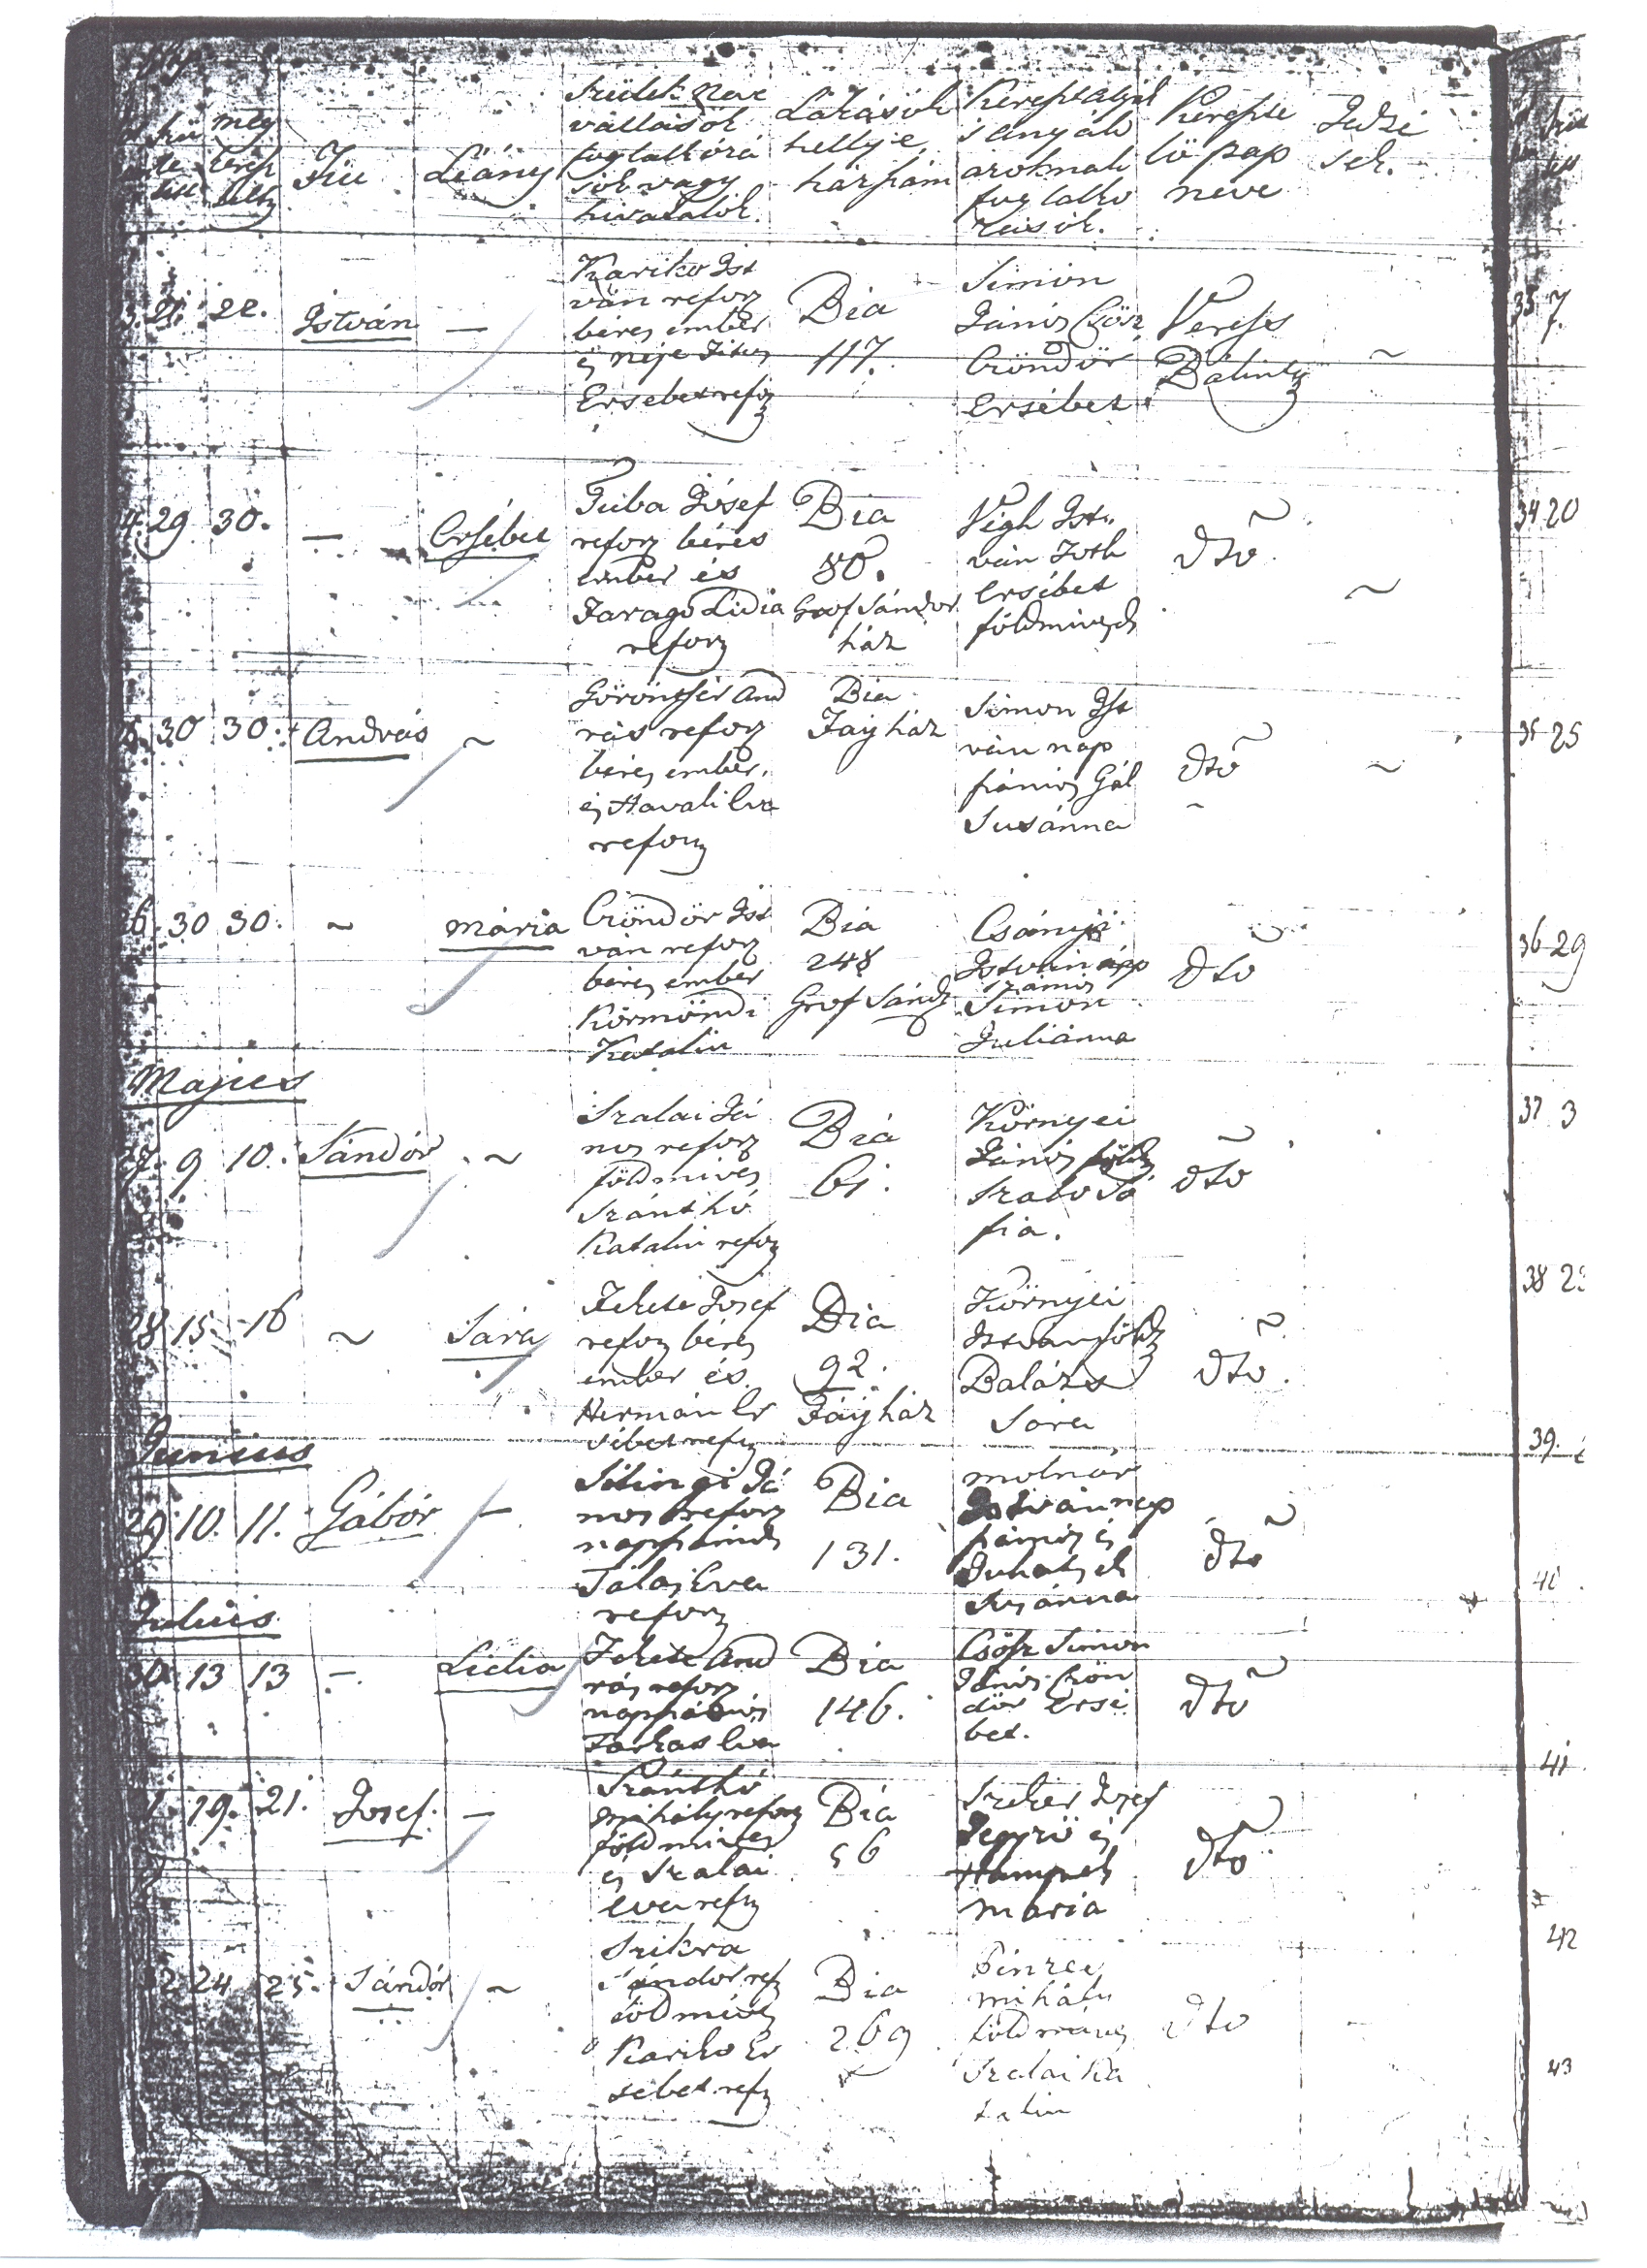 Fiú
Leány
Szülék Neve
vallások
foglalkozá
sok vagy
hivatalok.
Lakások
hellye,
házszám
Keresztatyák
s anyák
azoknak
foglalko
zások.
Keresz
lö pap
neve
Jedzé
sek.
21. 22.
István
—
Kariko Ist
ván reforz
béres ember
és neje
Ersebet refz
Bia
117.
Simon
János Csösz
Czöndör
Ersébet
Veress
Bálint
~
29 30.
—
Ersébet
Tuba Jósef
reforz béres
ember és
Farago Lidia
reforz
Bia
80.
Grof Sándor
ház
Végh Ist
ván Toth
Ersébet
földmives
dto
~
30 30.
András
~
And
rás reforz
béres ember.
és Havali Eva
reforz
Bia
Fáy ház
Simon Ist
ván nap
számos Gál
Susánna
dto
~
26. 30 30.
~
Mária
Czöndör Ist
ván reforz
béres ember
Körmöndi
Katalin
Bia
248
Grof Sándr
Csányi
István napp
számos
Simon
Juliánna
dto
Majus
27. 9 10.
Sándór
~
Szalai Já
nos reforz
földmives
Szánthó
Katalin reforz
Bia
61.
Környei
János földm
Szabo Só
fia.
dto
28 15. 16
~
Sára
Fekete Josef
reforz béres
ember és
Hermán Er
sébet refz
Bia
92.
Fáy ház
Környei
István földm
Balázs
Sára
dto
Junius
29 10. 11.
Gábór
—
Silingi Já
nos reforz
napszámos
Eva
reforz
Bia
131.
Molnár
István nap
számos és
Susánna
dto
Julius
30. 13 13
—
Lidia
Fekete And
rás reforz
napszámos
Farkas Eva
Bia
146.
Csösz Simon
János Czön
dör Ersé
bet.
dto
19. 21.
Josef.
—
Szánthó
Mihály reforz
földmives
és Szalai
Eva refz
Bia
56
Szeker Josef
Jegyző és
Maria
dto
24 25.
Sándór
~
Szikra
Sándor refz
földmives
Kariko Er
sebet refz
Bia
269
Pinzes
Mihály
földmives
Szalai Ka
talin
dto
35 7.
34 20
35 25
36 29
37 3
38
39.
40
41
42
43